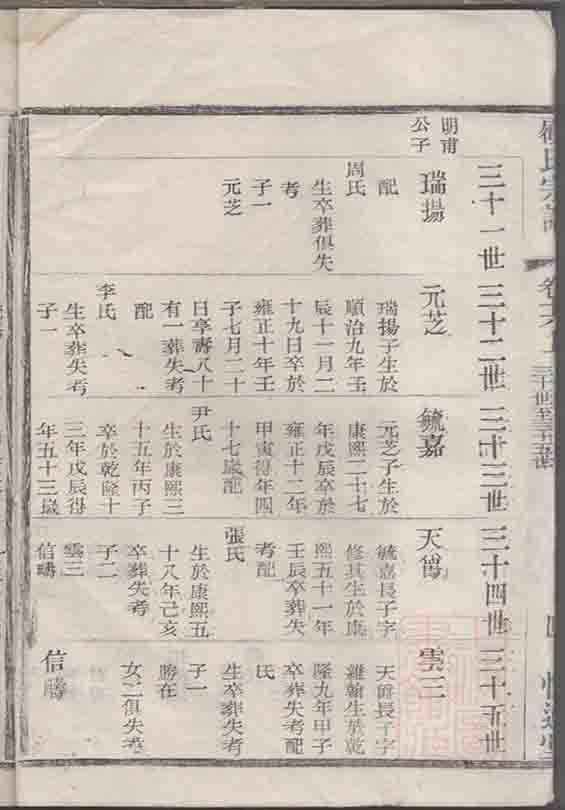 三十一世
明甫
公子
瑞揚
配
周氏
生卒葬俱失
考
子一
元芝
三十二世
元芝
瑞揚子生於
順治九年壬
辰十一月二
十九日卒於
雍正十年壬
子七月二十
日享壽八十
有一葬失考
配
李氏
生卒葬失考
子一
三十三世
毓嘉
元芝子生於
康熙二十七
年戊辰卒於
雍正十二年
甲寅得年四
十七歲配
尹氏
生於康熙三
十五年丙子
卒於乾隆十
三年戊辰得
年五十三歲
三十四世
天爵
毓嘉長子字
修其生於康
熙五十一年
壬辰卒葬失
考配
張氏
生於康熙五
十八年己亥
卒葬失考
子二
雲三
信疇
三十五世
雲三
天爵長子字
維翰生於乾
隆九年甲子
卒葬失考配
氏
生卒葬失考
子一
勝在
女二俱失考
信疇